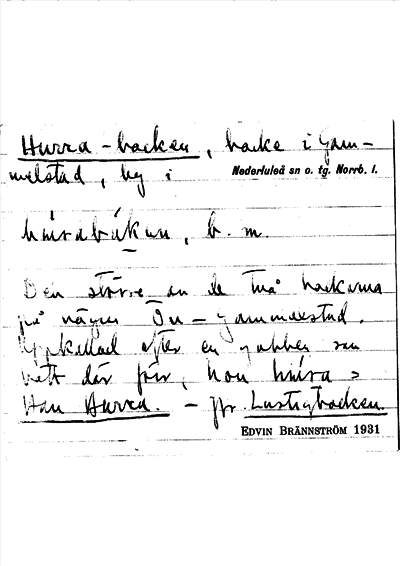 Hurra-backen, backe i Gam-
melstad, by i Nederluleå sn o. tg. Norrb. l.
b. m.
Den större av de två backarna
på vägen Ön - Gammelstad.
Uppkallad efter en gubbe som
bott där förr,
Han Hurra. - Jfr Lustigbacken.
EDVIN BRÄNNSTRÖM 1931